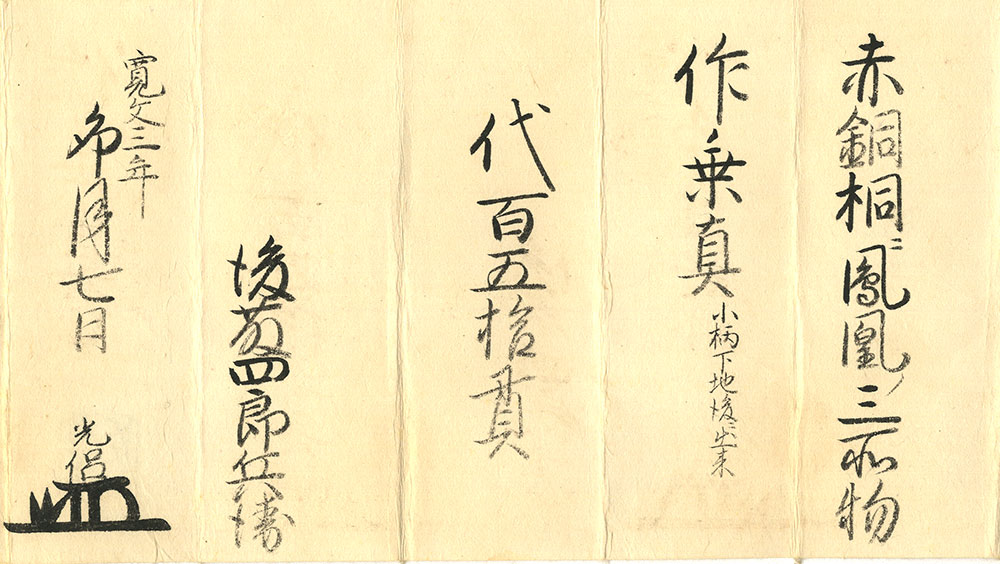 赤銅桐ニ鳳凰ノ三所物
作乗真 小柄下地後ニ出来
代百五拾貫
後藤四郎兵衛
寛文三年
卯月七日
光侶